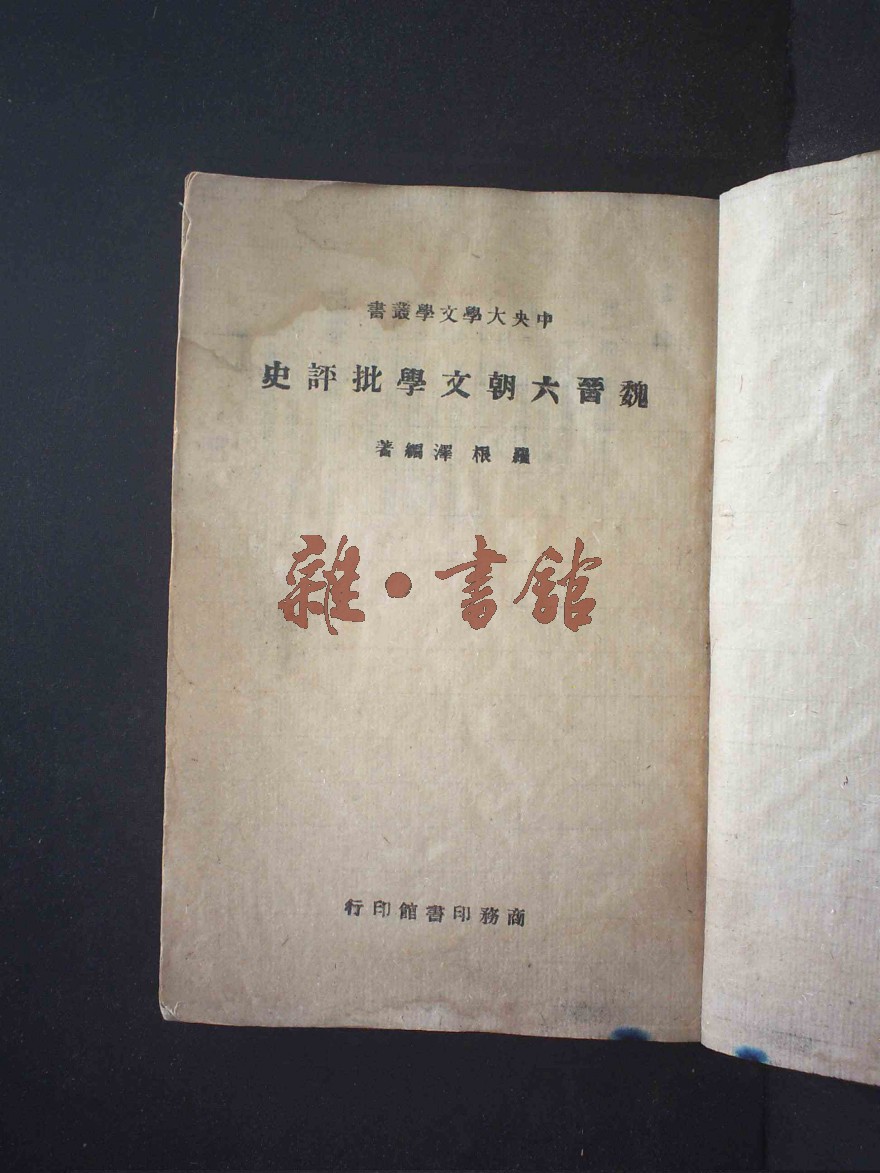 中央大學文學叢書
魏晉六朝文學批評史
羅根澤編著
雜·書館
商務印書館印行